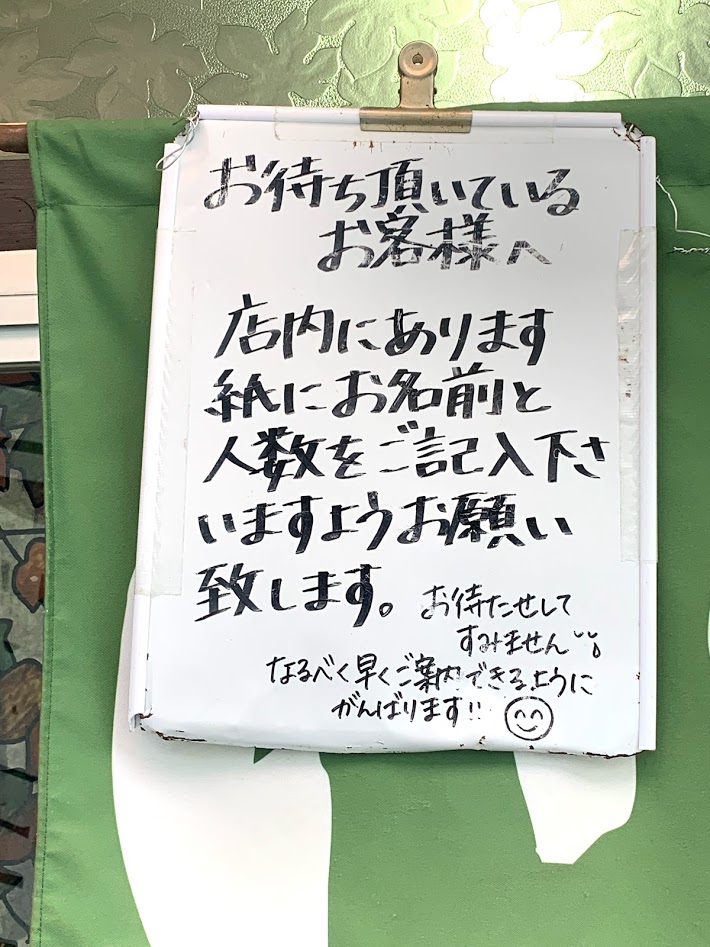 お待ち頂いている
お客様へ
店内にあります
紙にお名前と
人数をご記入下さ
いますようお願い
致します。
お待たせして
すみません
なるべく早くご案内できるように
がんばります!!